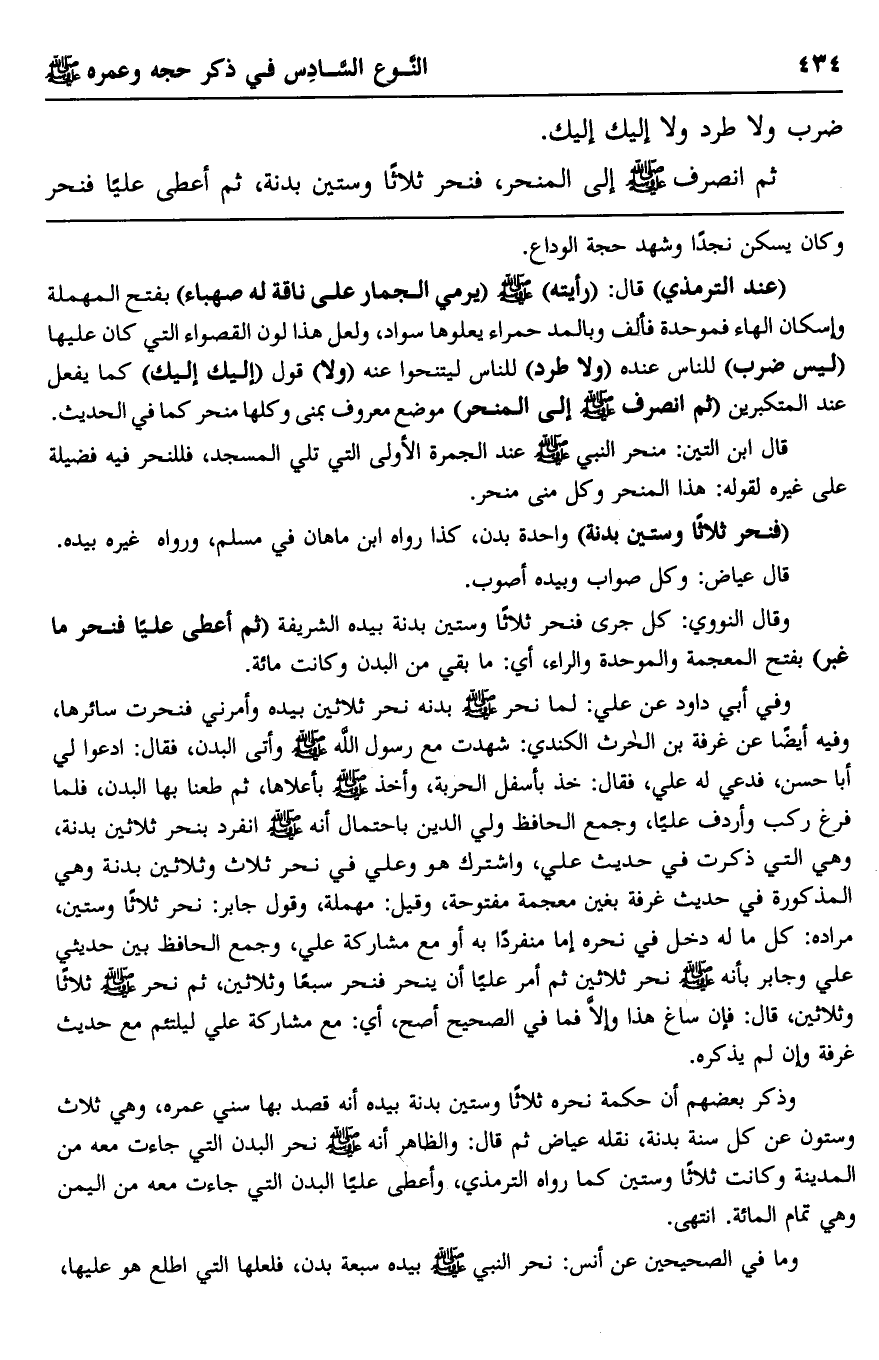 ٤٣٤ النَّوع السَّادِس في ذكر حجه وعمره ﷺ
ضرب ولا طرد ولا إليك إليك.
ثم انصرف ﷺ إلى المنحر، فنحر ثلاثًا وستين بدنة، ثم أعطى عليًا فنحر
وكان يسكن نجدًا وشهد حجة الوداع.
(عند الترمذي) قال: (رأيته) ﷺ (يرمي الجمار على ناقة له صهباء) بفتح المهملة
وإسكان الهاء فموحدة فألف وبالمد حمراء يعلوها سواد، ولعل هذا لون القصواء التي كان عليها
(ليس ضرب) للناس عنده (ولا طرد) للناس ليتنحوا عنه (ولا) قول (إليك إليك) كما يفعل
عند المتكبرين (ثم انصرف ﷺ إلى المنحر) موضع معروف بمنى وكلها منحر كما في الحديث.
قال ابن التين: منحر النبي ﷺ عند الجمرة الأولى التي تلي المسجد، فللنحر فيه فضيلة
على غيره لقوله: هذا المنحر وكل منى منحر.
(فنحر ثلاثًا وستين بدنة) واحدة بدن، كذا رواه ابن ماهان في مسلم، ورواه غيره بيده.
قال عياض: وكل صواب وبيده أصوب.
وقال النووي: كل جرى فنحر ثلاثًا وستين بدنة بيده الشريفة (ثم أعطى عليًا فنحر ما
غبر) بفتح المعجمة والموحدة والراء، أي: ما بقي من البدن وكانت مائة.
وفي أبي داود عن علي: لما نحر ﷺ بدنه نحر ثلاثين بيده وأمرني فنحرت سائرها،
وفيه أيضًا عن غرفة بن الحٰرث الكندي: شهدت مع رسول اللَّه ﷺ وأتى البدن، فقال: ادعوا لي
أبا حسن، فدعي له علي، فقال: خذ بأسفل الحربة، وأخذ ﷺ بأعلاها، ثم طعنا بها البدن، فلما
فرغ ركب وأردف عليًا، وجمع الحافظ ولي الدين باحتمال أنه ﷺ انفرد بنحر ثلاثين بدنة،
وهي التي ذكرت في حديث علي، واشترك هو وعلي في نحر ثلاث وثلاثين بدنة وهي
المذكورة في حديث غرفة بغين معجمة مفتوحة، وقيل: مهملة، وقول جابر: نحر ثلاثًا وستين،
مراده: كل ما له دخل في نحره إما منفردًا به أو مع مشاركة علي، وجمع الحافظ بين حديثي
علي وجابر بأنه ﷺ نحر ثلاثين ثم أمر عليًا أن ينحر فنحر سبعًا وثلاثين، ثم نحر ﷺ ثلاثًا
وثلاثين، قال: فإن ساغ هذا وإلاَّ فما في الصحيح أصح، أي: مع مشاركة علي ليلتئم مع حديث
غرفة وإن لم يذكره.
وذكر بعضهم أن حكمة نحره ثلاثًا وستين بدنة بيده أنه قصد بها سني عمره، وهي ثلاث
وستون عن كل سنة بدنة، نقله عياض ثم قال: والظاهر أنه ﷺ نحر البدن التي جاءت معه من
المدينة وكانت ثلاثًا وستين كما رواه الترمذي، وأعطى عليًا البدن التي جاءت معه من اليمن
وهي تمام المائة. انتهى.
وما في الصحيحين عن أنس: نحر النبي ﷺ بيده سبعة بدن، فلعلها التي اطلع هو عليها،